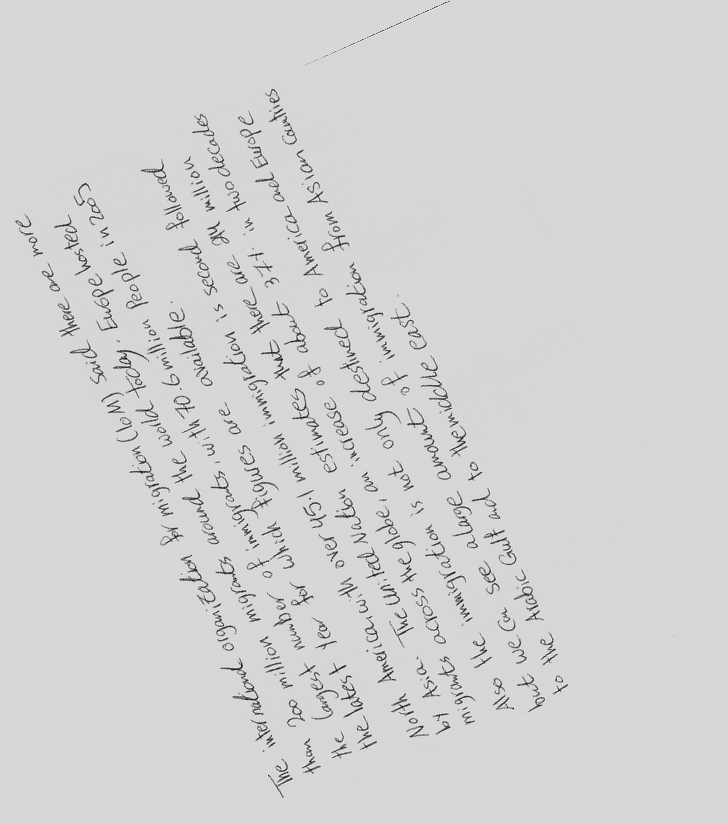 The international organization for migration (IoM) said there are more
than 200 million migrants around the world today. Europe hosted
the largest number of immigrants, with 70.6 million People in 2005
the latest year for which figures are available.
North American with over 45.1 million immigration is second followed
by Asia. The United Nation estimates that there are million
migrants across the globe, an increase of about 37% in two decades
Also the immigration is not only destined to America and Europe
but we can see a large amount of immigration from Asian countries
to the Arabic Gulf and to the middle east.